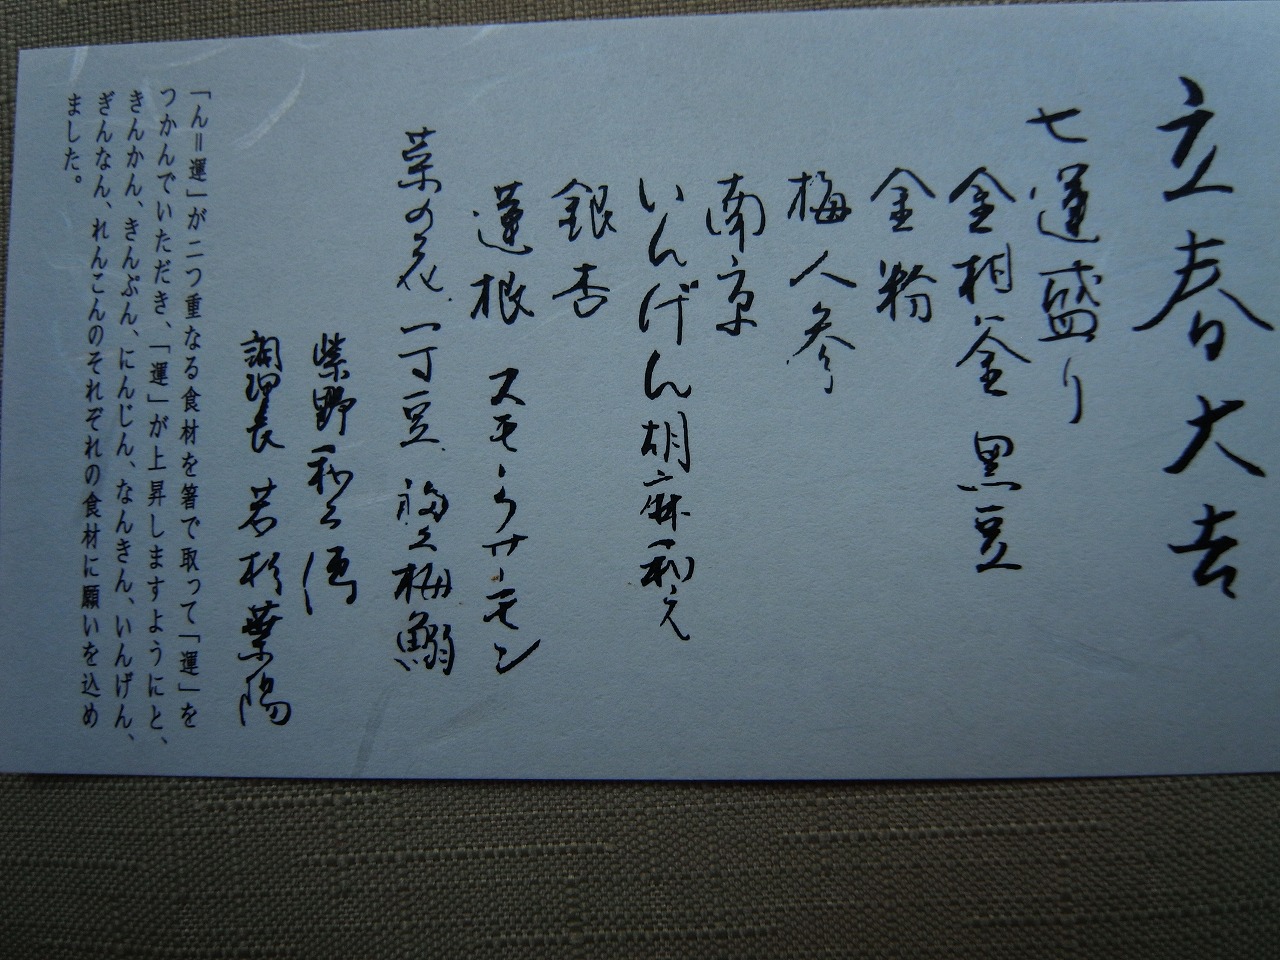 立春大吉
七運盛り
金柑釜 黒豆
金粉
梅人参
南京
いんげん胡麻和え
銀杏
蓮根 スモークサーモン
菜の花 一寸豆 梅鰯
紫野和久傳
調理長 若杉葉陽
「ん＝運」が二つ重なる食材を箸で取って「運」を
つかんでいただき、「運」が上昇しますようにと、
きんかん、きんぷん、にんじん、なんきん、いんげん、
ぎんなん、れんこんのそれぞれの食材に願いを込め
ました。